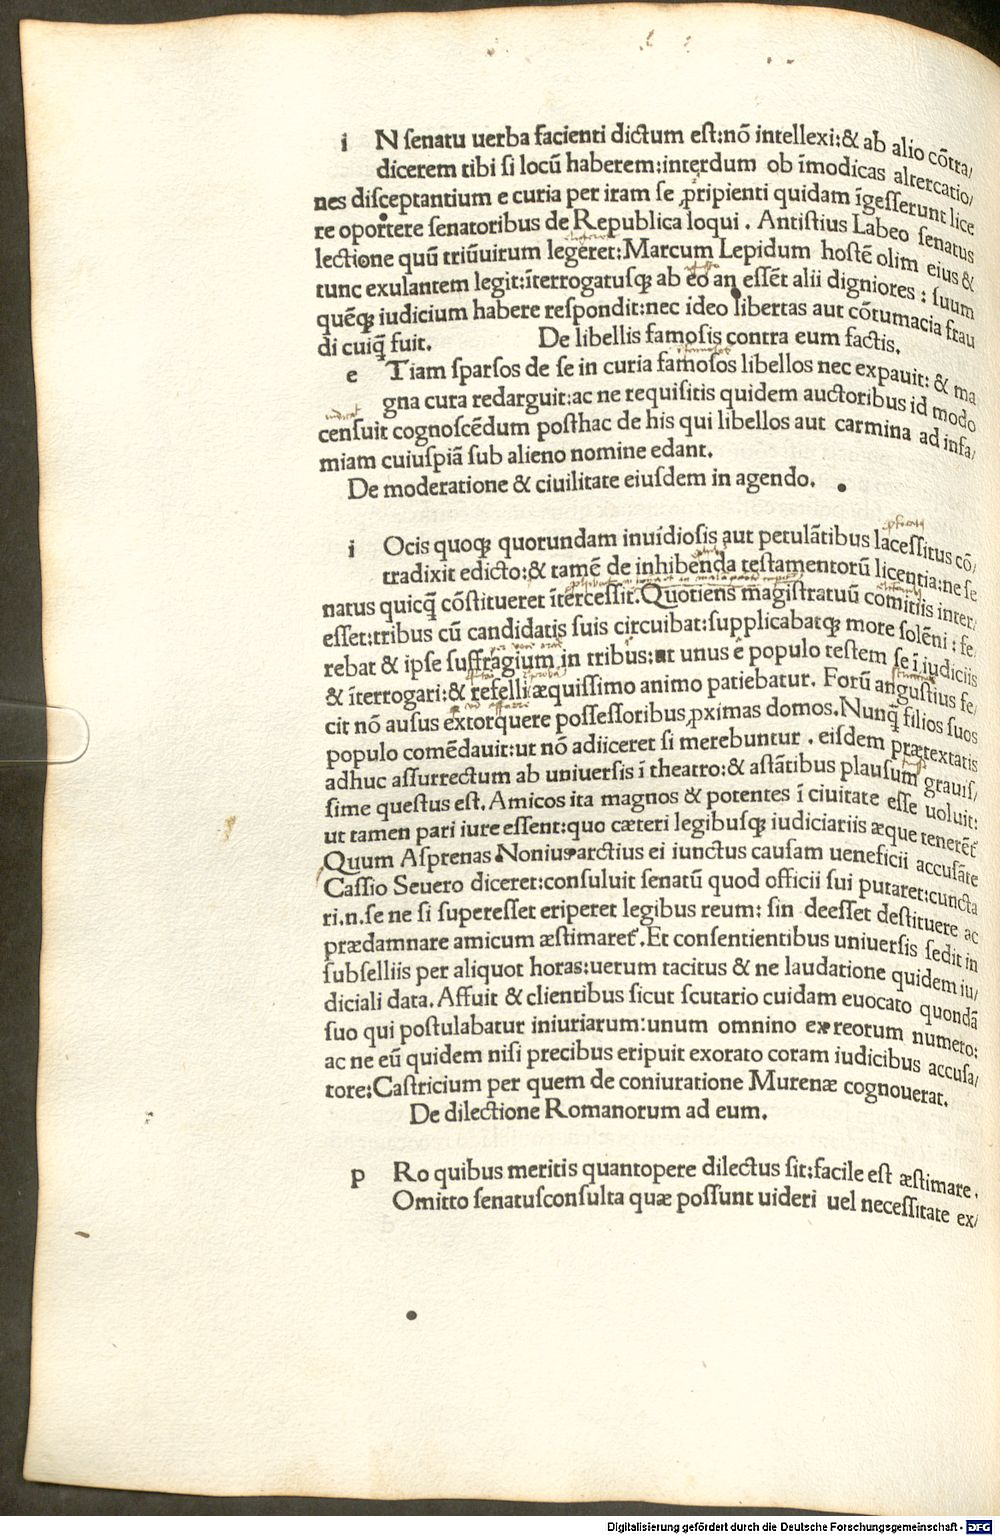 i N ſenatu uerba facienti dictum eſt:nō intellexi:& ab alio cōtra/
dicerem tibi ſi locū haberem:interdum ob īmodicas altercatio/
nes diſceptantium e curia per iram ſe ꝓripienti quidam īgeſſerunt lice
re oportere ſenatoribus de Republica loqui . Antiſtius Labeo ſenatus
lectione quū triūuirum legeret:Marcum Lepidum hoſtē olim eius &
tunc exulantem legit:īterrogatuſqꝫ ab eo an eſſēt alii digniores : ſuum
quēqꝫ iudicium habere reſpondit:nec ideo libertas aut cōtumacia frau
di cuiq̄ fuit. De libellis famoſis contra eum factis.
e Tiam ſparſos de ſe in curia famoſos libellos nec expauit: & ma
gna cura redarguit:ac ne requiſitis quidem auctoribus id modo
cenſuit cognoſcēdum poſthac de his qui libellos aut carmina ad infa/
miam cuiuſpiā ſub alieno nomine edant.
De moderatione & ciuilitate eiuſdem in agendo.
i Ocis quoqꝫ quorundam inuidioſis aut petulātibus laceſſitus cō/
tradixit edicto:& tamē de inhibenda teſtamentorū licentia:ne ſe
natus quicq̄ cōſtitueret īterceſſit.Quotiens magiſtratuū comitiis inter/
eſſet:tribus cū candidatis ſuis circuibat:ſupplicabatqꝫ more ſolēni : fe/
rebat & ipſe ſuffragium in tribus:ut unus ē populo teſtem ſe ī iudiciis
& īterrogari:& refelli æquiſſimo animo patiebatur. Forū anguſtius fe/
cit nō auſus extorquere poſſeſſoribus ꝓximas domos.Nunq̄ filios ſuos
populo comēdauit:ut nō adiiceret ſi merebuntur . eiſdem prætextatis
adhuc aſſurrectum ab uniuerſis ī theatro:& aſtātibus plauſum grauiſ/
ſime queſtus eſt. Amicos ita magnos & potentes ī ciuitate eſſe uoluit:
ut tamen pari iure eſſent:quo cæteri legibuſqꝫ iudiciariis æque tenerēt᷑
Quum Aſprenas Nonius arctius ei iunctus cauſam ueneficii accuſāte
Caſſio Seuero diceret:conſuluit ſenatū quod officii ſui putaret:cuncta
ri.n.ſe ne ſi ſupereſſet eriperet legibus reum: ſin deeſſet deſtituere ac
prædamnare amicum æſtimaret᷑.Et conſentientibus uniuerſis ſedit in
ſubſelliis per aliquot horas:uerum tacitus & ne laudatione quidem iu/
diciali data. Affuit & clientibus ſicut ſcutario cuidam euocato quondā
ſuo qui poſtulabatur iniuriarum:unum omnino ex reorum numero:
ac ne eū quidem niſi precibus eripuit exorato coram iudicibus accuſa/
tore:Caſtricium per quem de coniuratione Murenæ cognouerat.
De dilectione Romanorum ad eum.
p Ro quibus meritis quantopere dilectus ſit:facile eſt æſtimare .
Omitto ſenatuſconſulta quæ poſſunt uideri uel neceſſitate ex/
Digitalisierung gefördert durch die Deutsche Forschungsgemeinschaft - DFG